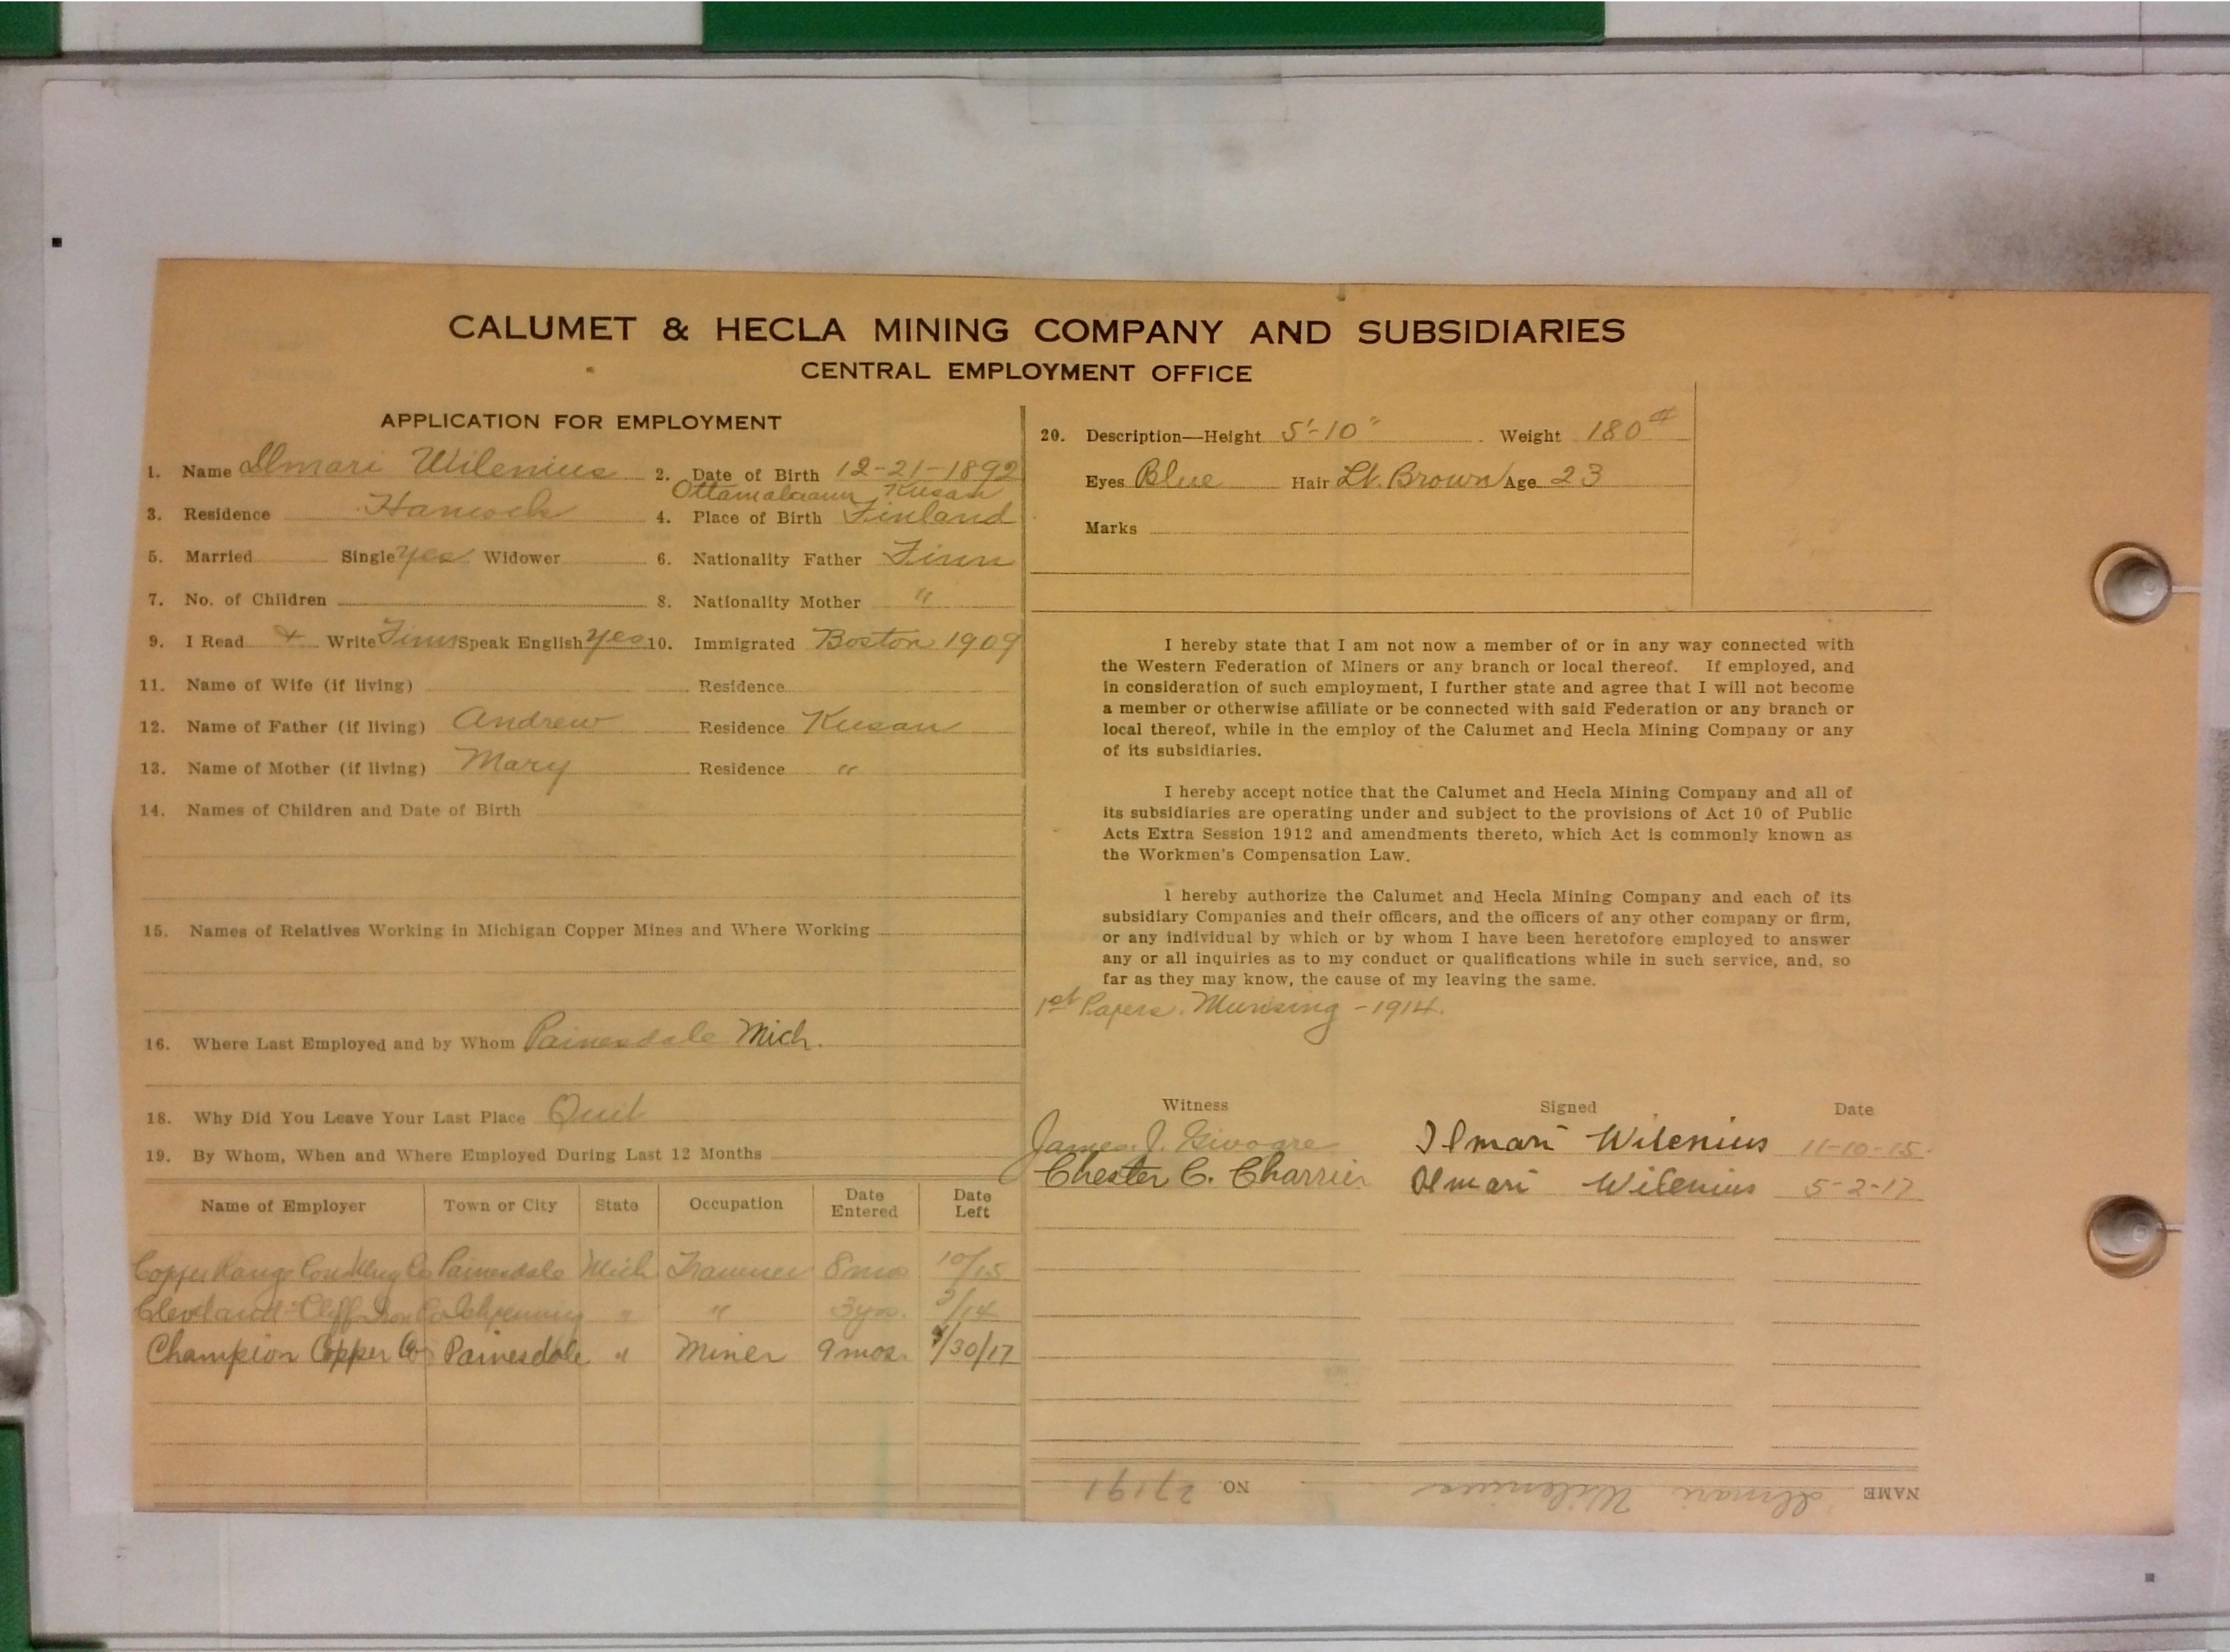 CALUMET & HECLA MINING COMPANY AND SUBSIDIARIES
CENTRAL EMPLOYMENT OFFICE
APPLICATION FOR EMPLOYMENT
1. Name Ilmari Wilenius 2. Date of Birth 12-21-1892
Kusan
3. Residence Hancock 4. Place of Birth Finland
5. Married Single yes Widower 6. Nationality Father Finn
7. No. of Children 8. Nationality Mother "
9. I Read & Write Finn Speak English yes 10. Immigrated Boston 1909
11. Name of Wife (if living) Residence
12. Name of Father (if living) Andrew Residence Kusan
13. Name of Mother (if living) Mary Residence "
14. Names of Children and Date of Birth
15. Names of Relatives Working in Michigan Copper Mines and Where Working
16. Where Last Employed and by Whom Painesdale Mich.
18. Why Did You Leave Your Last Place Quit
19. By Whom, When and Where Employed During Last 12 Months
Name of Employer Town or City State Occupation Date Entered Date Left
Copper Range Co Painesdale Mich Trammer 8 mo 10/15
Cleveland Cliff Iron Co Ishpeming " " 3 yrs. /14
Champion Copper Co Painesdale " Miner 9 mos. 4/30/17
20. Description—Height 5'-10" Weight 180#
Eyes Blue Hair Lt. Brown Age 23
Marks
I hereby state that I am not now a member of or in any way connected with
the Western Federation of Miners or any branch or local thereof. If employed, and
in consideration of such employment, I further state and agree that I will not become
a member or otherwise affiliate or be connected with said Federation or any branch or
local thereof, while in the employ of the Calumet and Hecla Mining Company or any
of its subsidiaries.
I hereby accept notice that the Calumet and Hecla Mining Company and all of
its subsidiaries are operating under and subject to the provisions of Act 10 of Public
Acts Extra Session 1912 and amendments thereto, which Act is commonly known as
the Workmen's Compensation Law.
I hereby authorize the Calumet and Hecla Mining Company and each of its
subsidiary Companies and their officers, and the officers of any other company or firm,
or any individual by which or by whom I have been heretofore employed to answer
any or all inquiries as to my conduct or qualifications while in such service, and, so
far as they may know, the cause of my leaving the same.
1st Papers. Munising - 1914.
Witness Signed Date
James J. Ilmari Wilenius 11-10-15
Chester C. Charrier Ilmari Wilenius 5-2-17
NAME Ilmari Wilenius NO. 27191